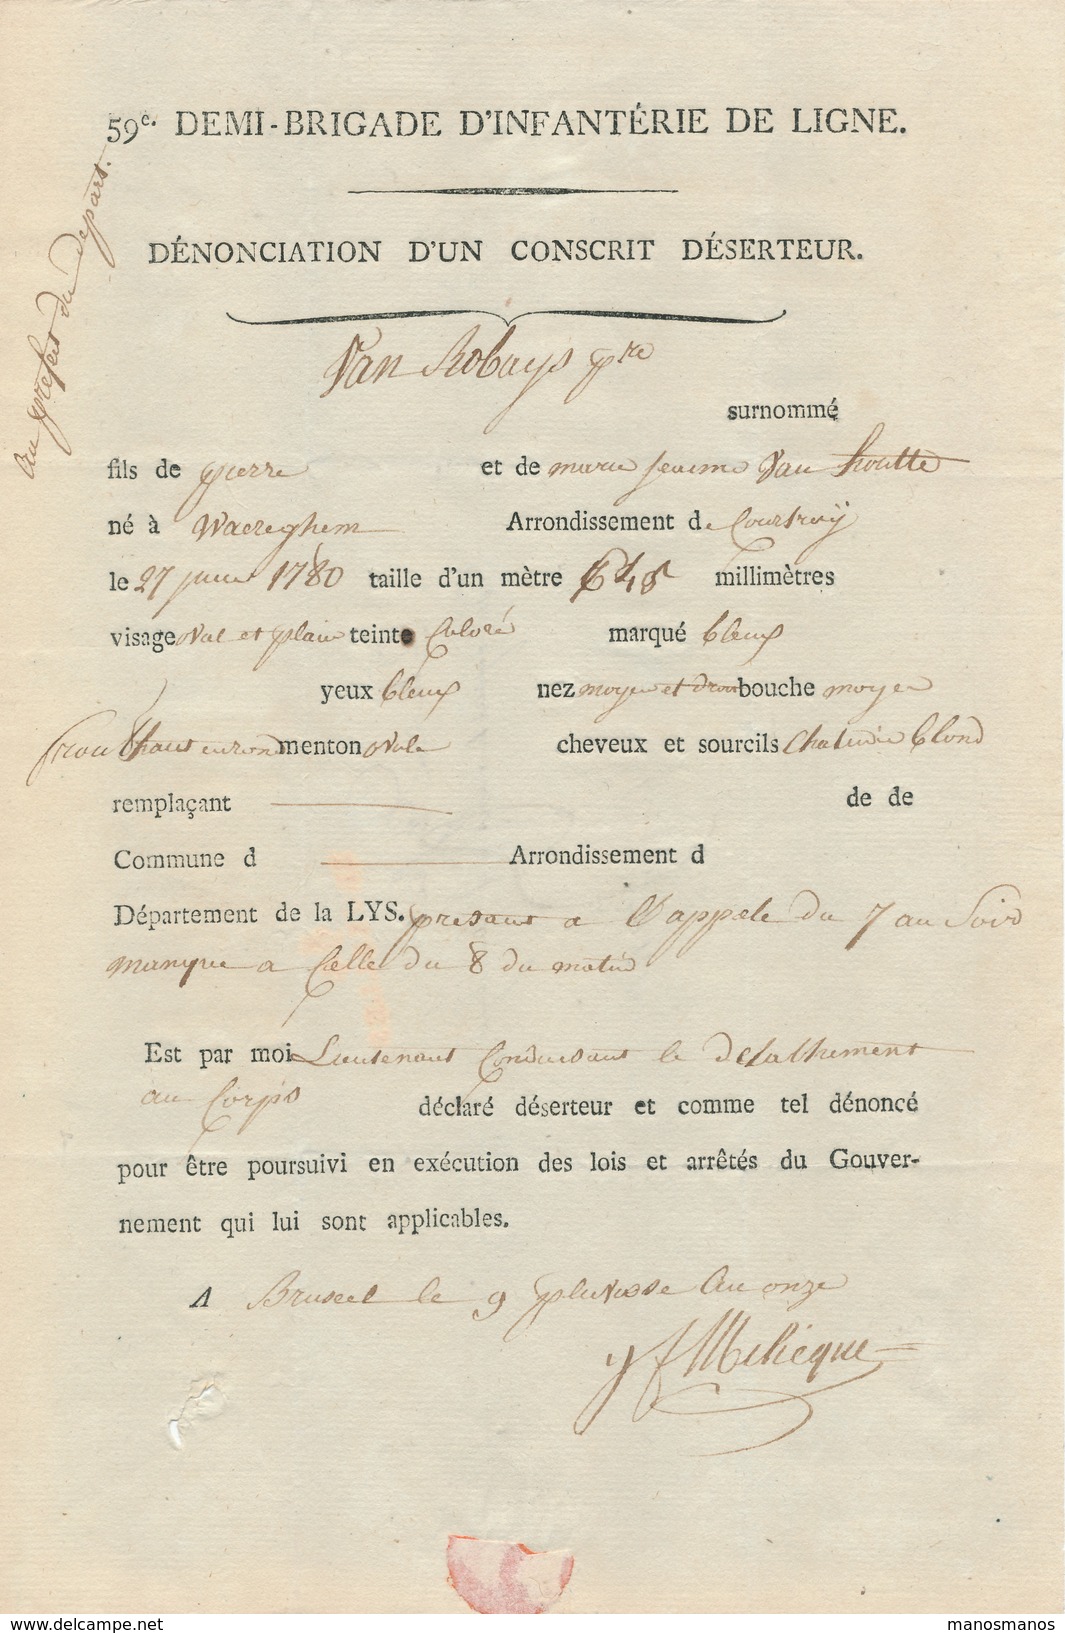 59e. DEMI-BRIGADE D'INFANTÉRIE DE LIGNE.
au prefet du depart.
DÉNONCIATION D'UN CONSCRIT DÉSERTEUR.
Van Robays pre
surnommé
fils de pierre et de marie jeanne Van houtte
né à Waereghem Arrondissement de Courtroÿ
le 27 1780 taille d'un mètre 648 millimètres
visage oval et plain teinte Coloré marqué bleux
yeux bleux nez moyen et droit bouche moyen
front haut en rond menton ovale cheveux et sourcils blond
remplaçant de de
Commune d Arrondissement d
Département de la LYS. presant a l'appele du 7 au Soir
manque a Celle du 8 du matin
Est par moi Lieutenant Conduisant le detalhement
au Corps déclaré déserteur et comme tel dénoncé
pour être poursuivi en exécution des lois et arrêtés du Gouver-
nement qui lui sont applicables.
A Bruxel le 9 pluviose an onze
delcampe.net
manosmanos